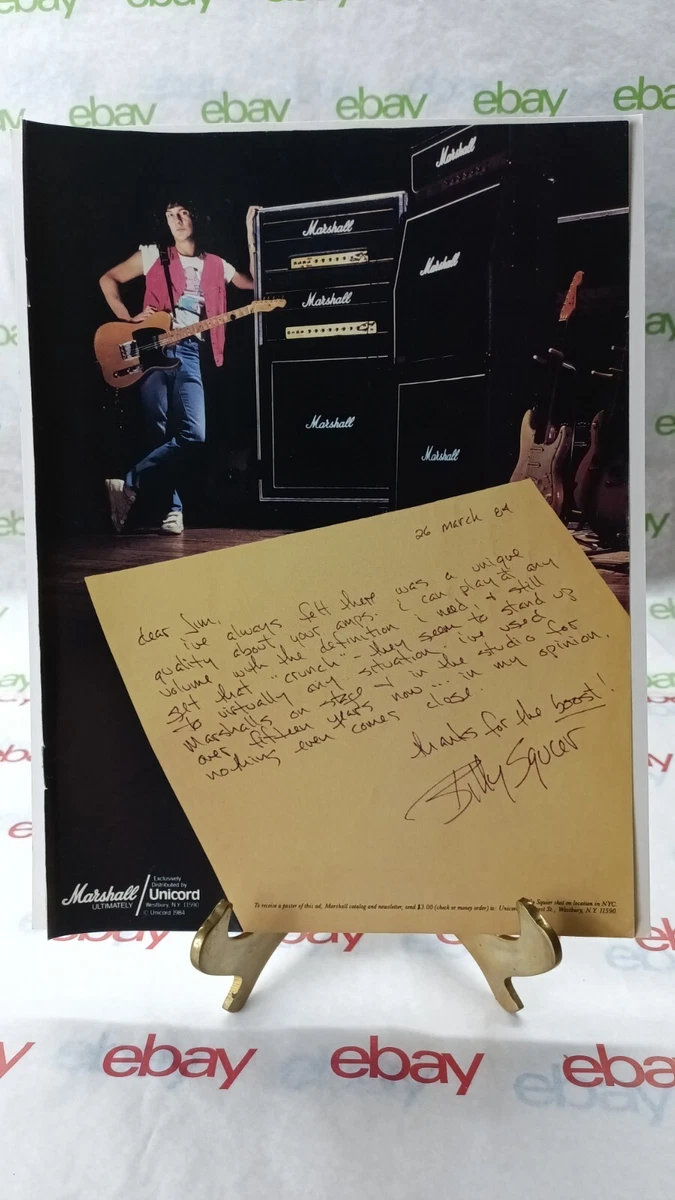 ebay ebay ebay ebay
ebay ebay ebay ebay ebay
Marshall
Marshall
Marshall
Marshall
Marshall
Marshall
26 march 84
dear Jim,
i've always felt there was a unique
quality about your amps. i can play at any
volume with the definition i need, & still
get that "crunch" - they seem to stand up
to virtually any situation. i've used
marshalls on stage & in the studio for
over fifteen years now... in my opinion,
nothing even comes close.
thanks for the boost!
Billy Squier
Marshall
ULTIMATELY
Exclusively
Distributed by
Unicord
Westbury, N.Y. 11590
© Unicord 1984
To receive a poster of this ad, Marshall catalog and newsletter, send $3.00 (check or money order) to: Unicord
Squier shot on location in NYC
St., Westbury, N.Y. 11590
ebay ebay ebay ebay